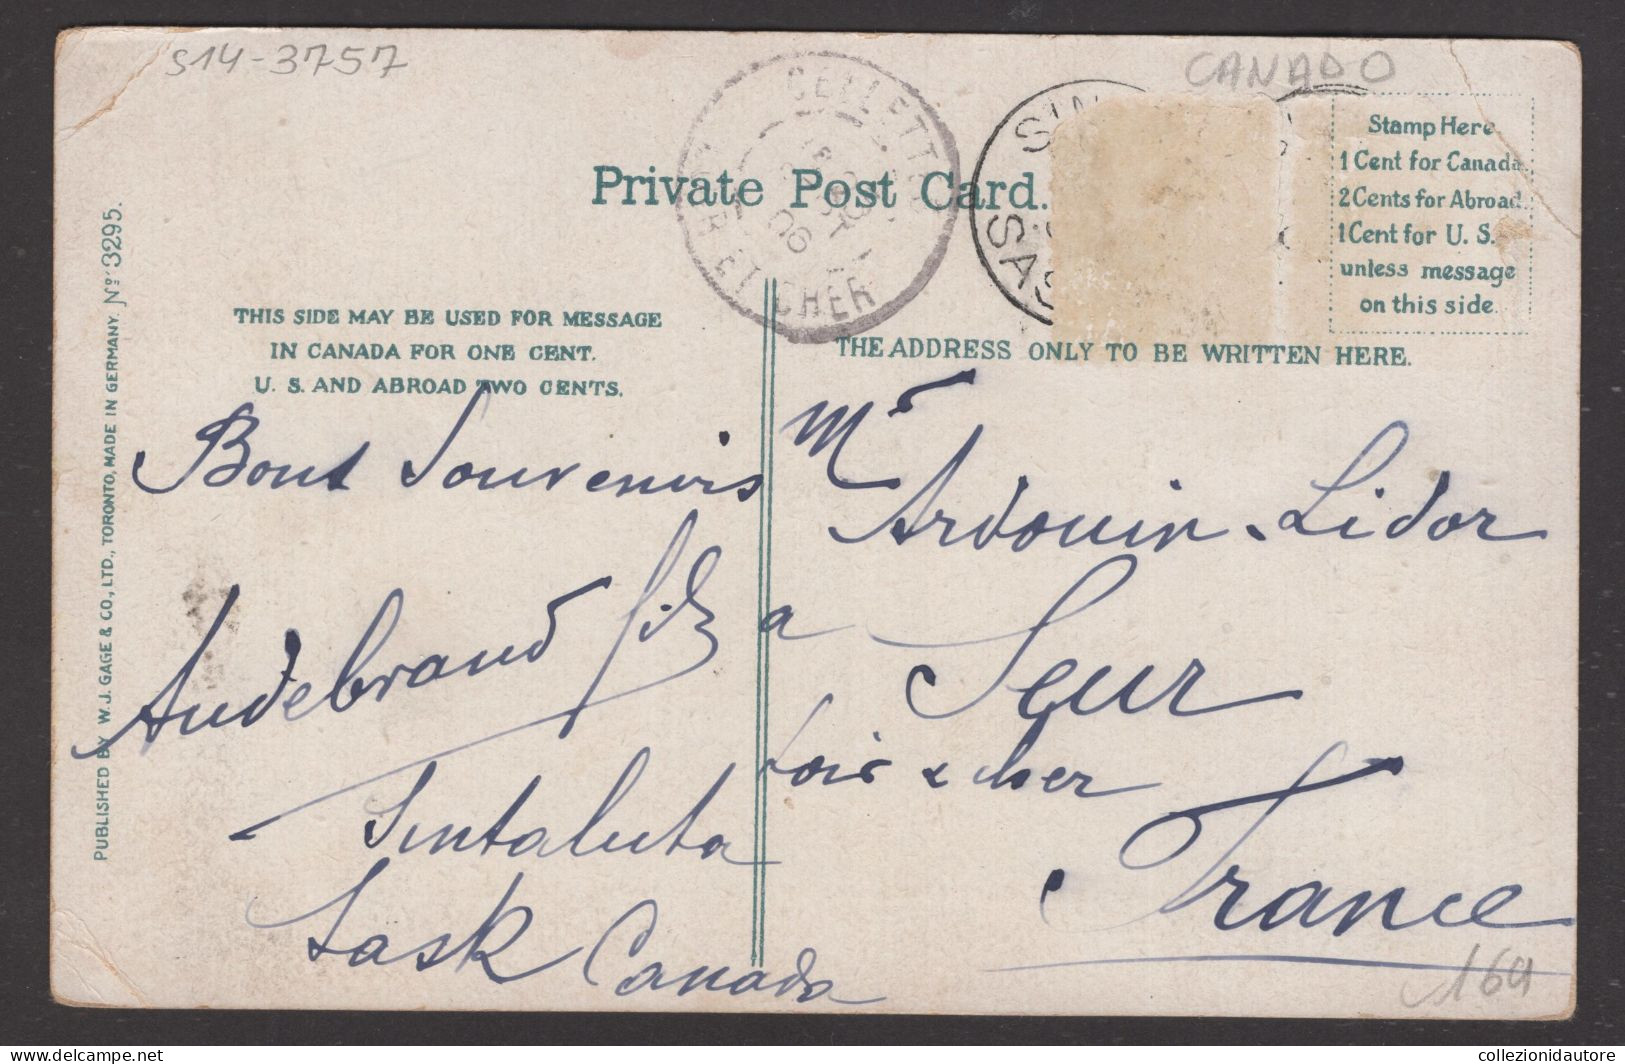 S14-3757
CANADO
CELLETTES
LOIR ET CHER
06
SIN
SAS
Private Post Card.
Stamp Here
1 Cent for Canada
2 Cents for Abroad
1 Cent for U. S.
unless message
on this side.
THIS SIDE MAY BE USED FOR MESSAGE
IN CANADA FOR ONE CENT.
U. S. AND ABROAD TWO CENTS.
THE ADDRESS ONLY TO BE WRITTEN HERE.
PUBLISHED BY W. J. GAGE & CO., LTD., TORONTO, MADE IN GERMANY. No. 3295.
Bout Souvenirs
Audebrand fils
Sintaluta
Sask Canada
Mr
Ardouin-Lidor
a Seur
Loir & cher
France
164
collezionidautore